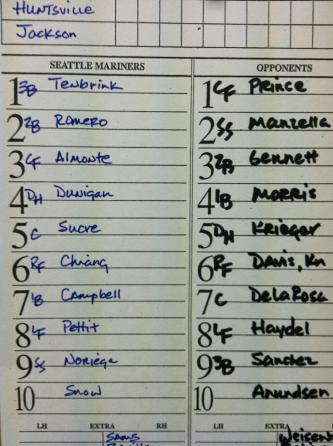 Huntsville
Jackson
SEATTLE MARINERS
1 3B Tenbrink
2 2B Romero
3 CF Almonte
4 DH Dunigan
5 C Sucre
6 RF Chiang
7 1B Campbell
8 LF Pettit
9 SS Noriega
10 Snow
LH EXTRA RH
OPPONENTS
1 CF Prince
2 SS Manzella
3 2B Gennett
4 1B Morris
5 DH Krieger
6 RF Davis, Kn
7 C DeLaRosa
8 LF Haydel
9 3B Sanchez
10 Anundsen
LH EXTRA